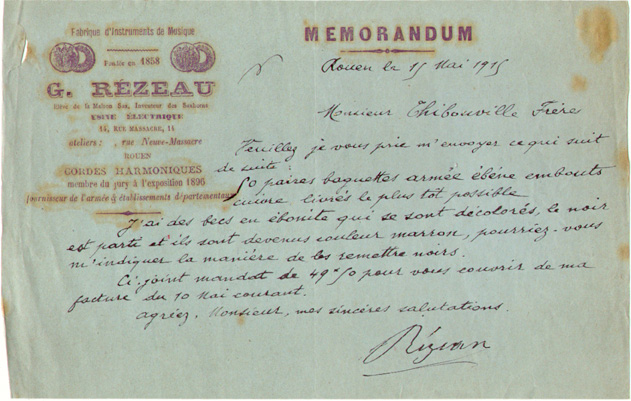 Fabrique d'Instruments de Musique
Fondée en 1858
G. RÉZEAU
Élève de la Maison Sax, Inventeur des Saxhorns
USINE ÉLECTRIQUE
14, RUE MASSACRE, 14
ateliers : , rue Neuve-Massacre
ROUEN
CORDES HARMONIQUES
membre du jury à l'exposition 1896
fournisseur de l'armée & établissements départementaux
MEMORANDUM
Rouen le 15 Mai 1915
Monsieur Thibouville Frères
Veuillez je vous prie m'envoyer ce qui suit
de suite :
50 paires baguettes armée ébène embouts
cuivre livrés le plus tôt possible
J'ai des becs en ébonite qui se sont décolorés, le noir
est parte et ils sont devenus couleur marron, pourriez-vous
m'indiquer la manière de les remettre noirs.
Ci joint mandat de 49f50 pour vous couvrir de ma
facture du 10 Mai courant.
agréez, Monsieur, mes sincères salutations.
Rézeau